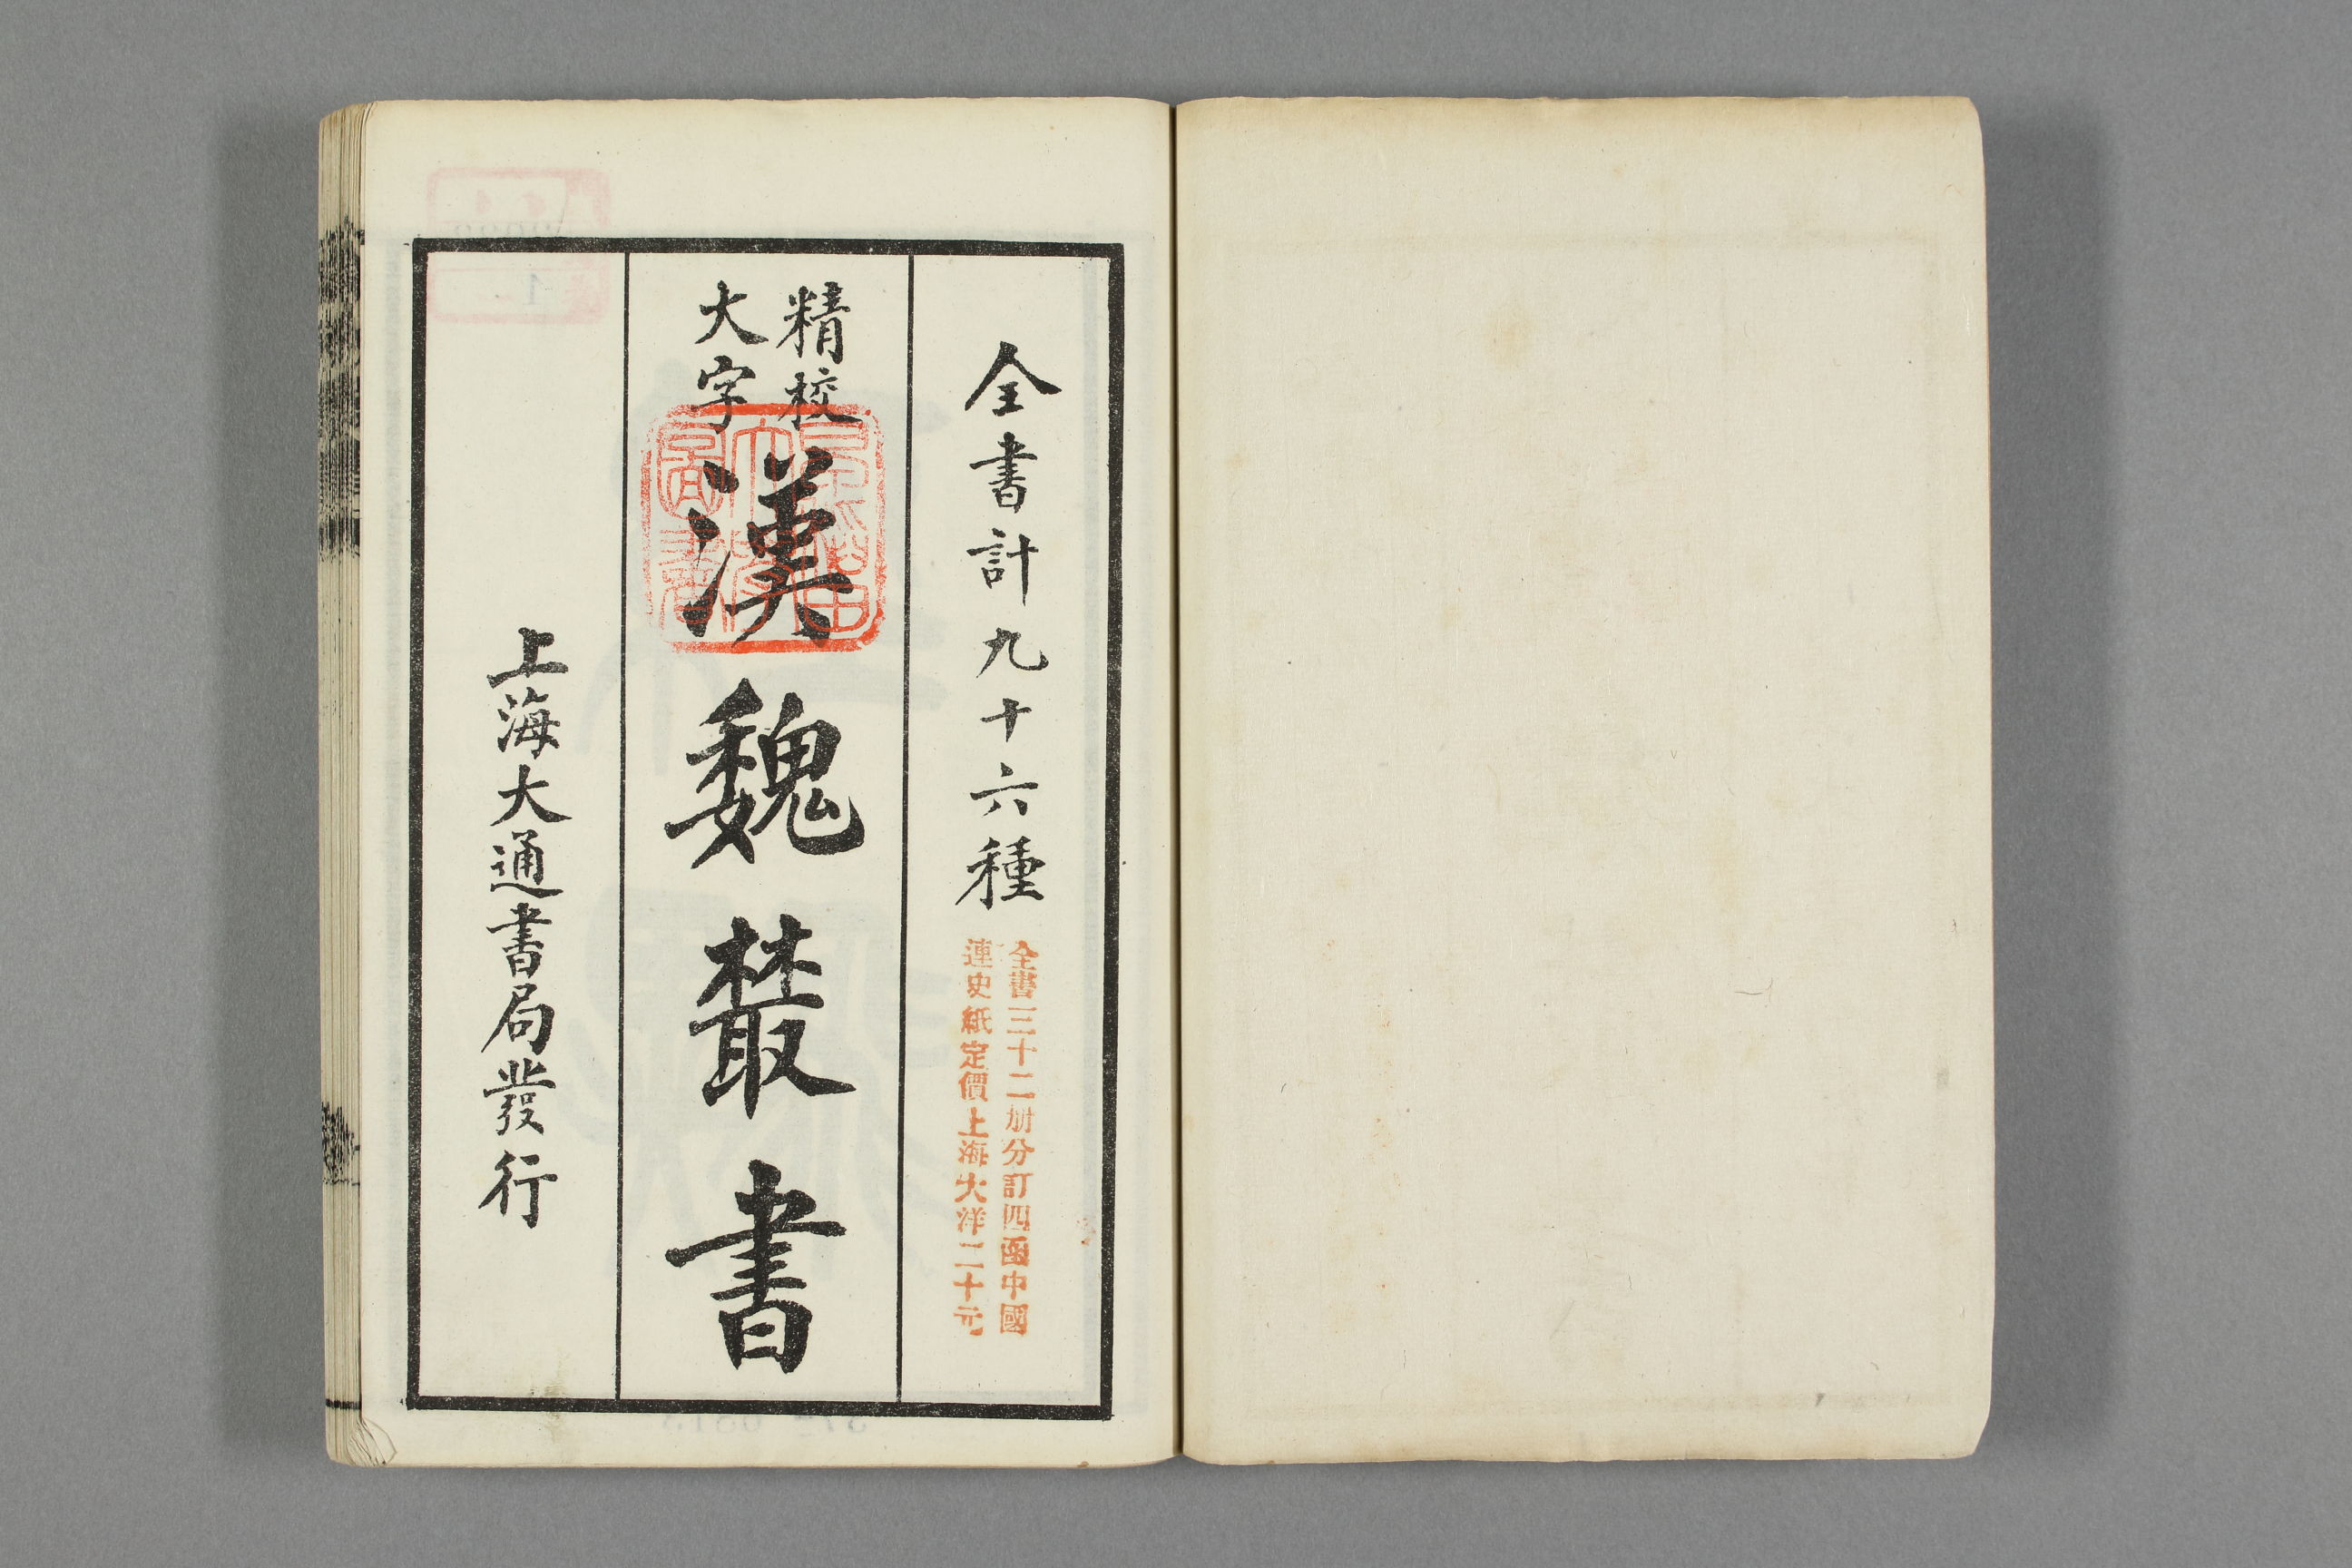 全書計九十六種
全書三十二册分訂四函中國
連史紙定價上海大洋二十元
精校
大字
漢魏叢書
上海大通書局發行